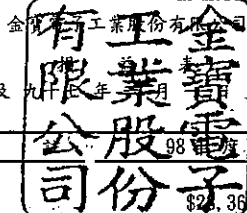 金寶電子工業股份有限公司
及 九十 年 月
98
,36
金寶電子
工業股份
有限公司